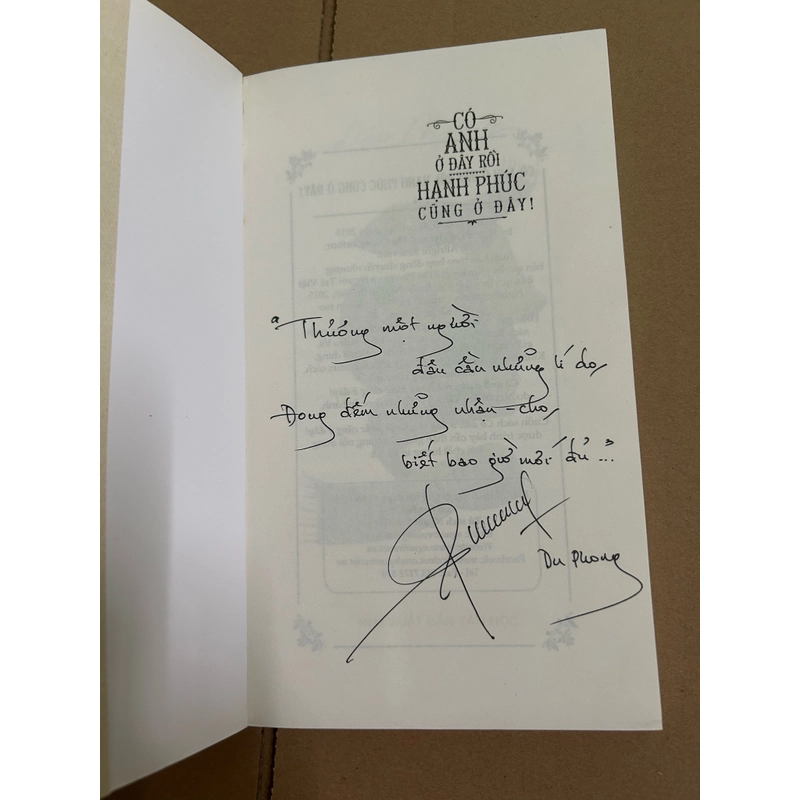 CÓ
ANH
Ở ĐÂY RỒI
HẠNH PHÚC
CŨNG Ở ĐÂY!
"Thương một người
đâu cần những lí do,
Đong đếm những nhận - cho,
biết bao giờ mới đủ..."
Du Phong